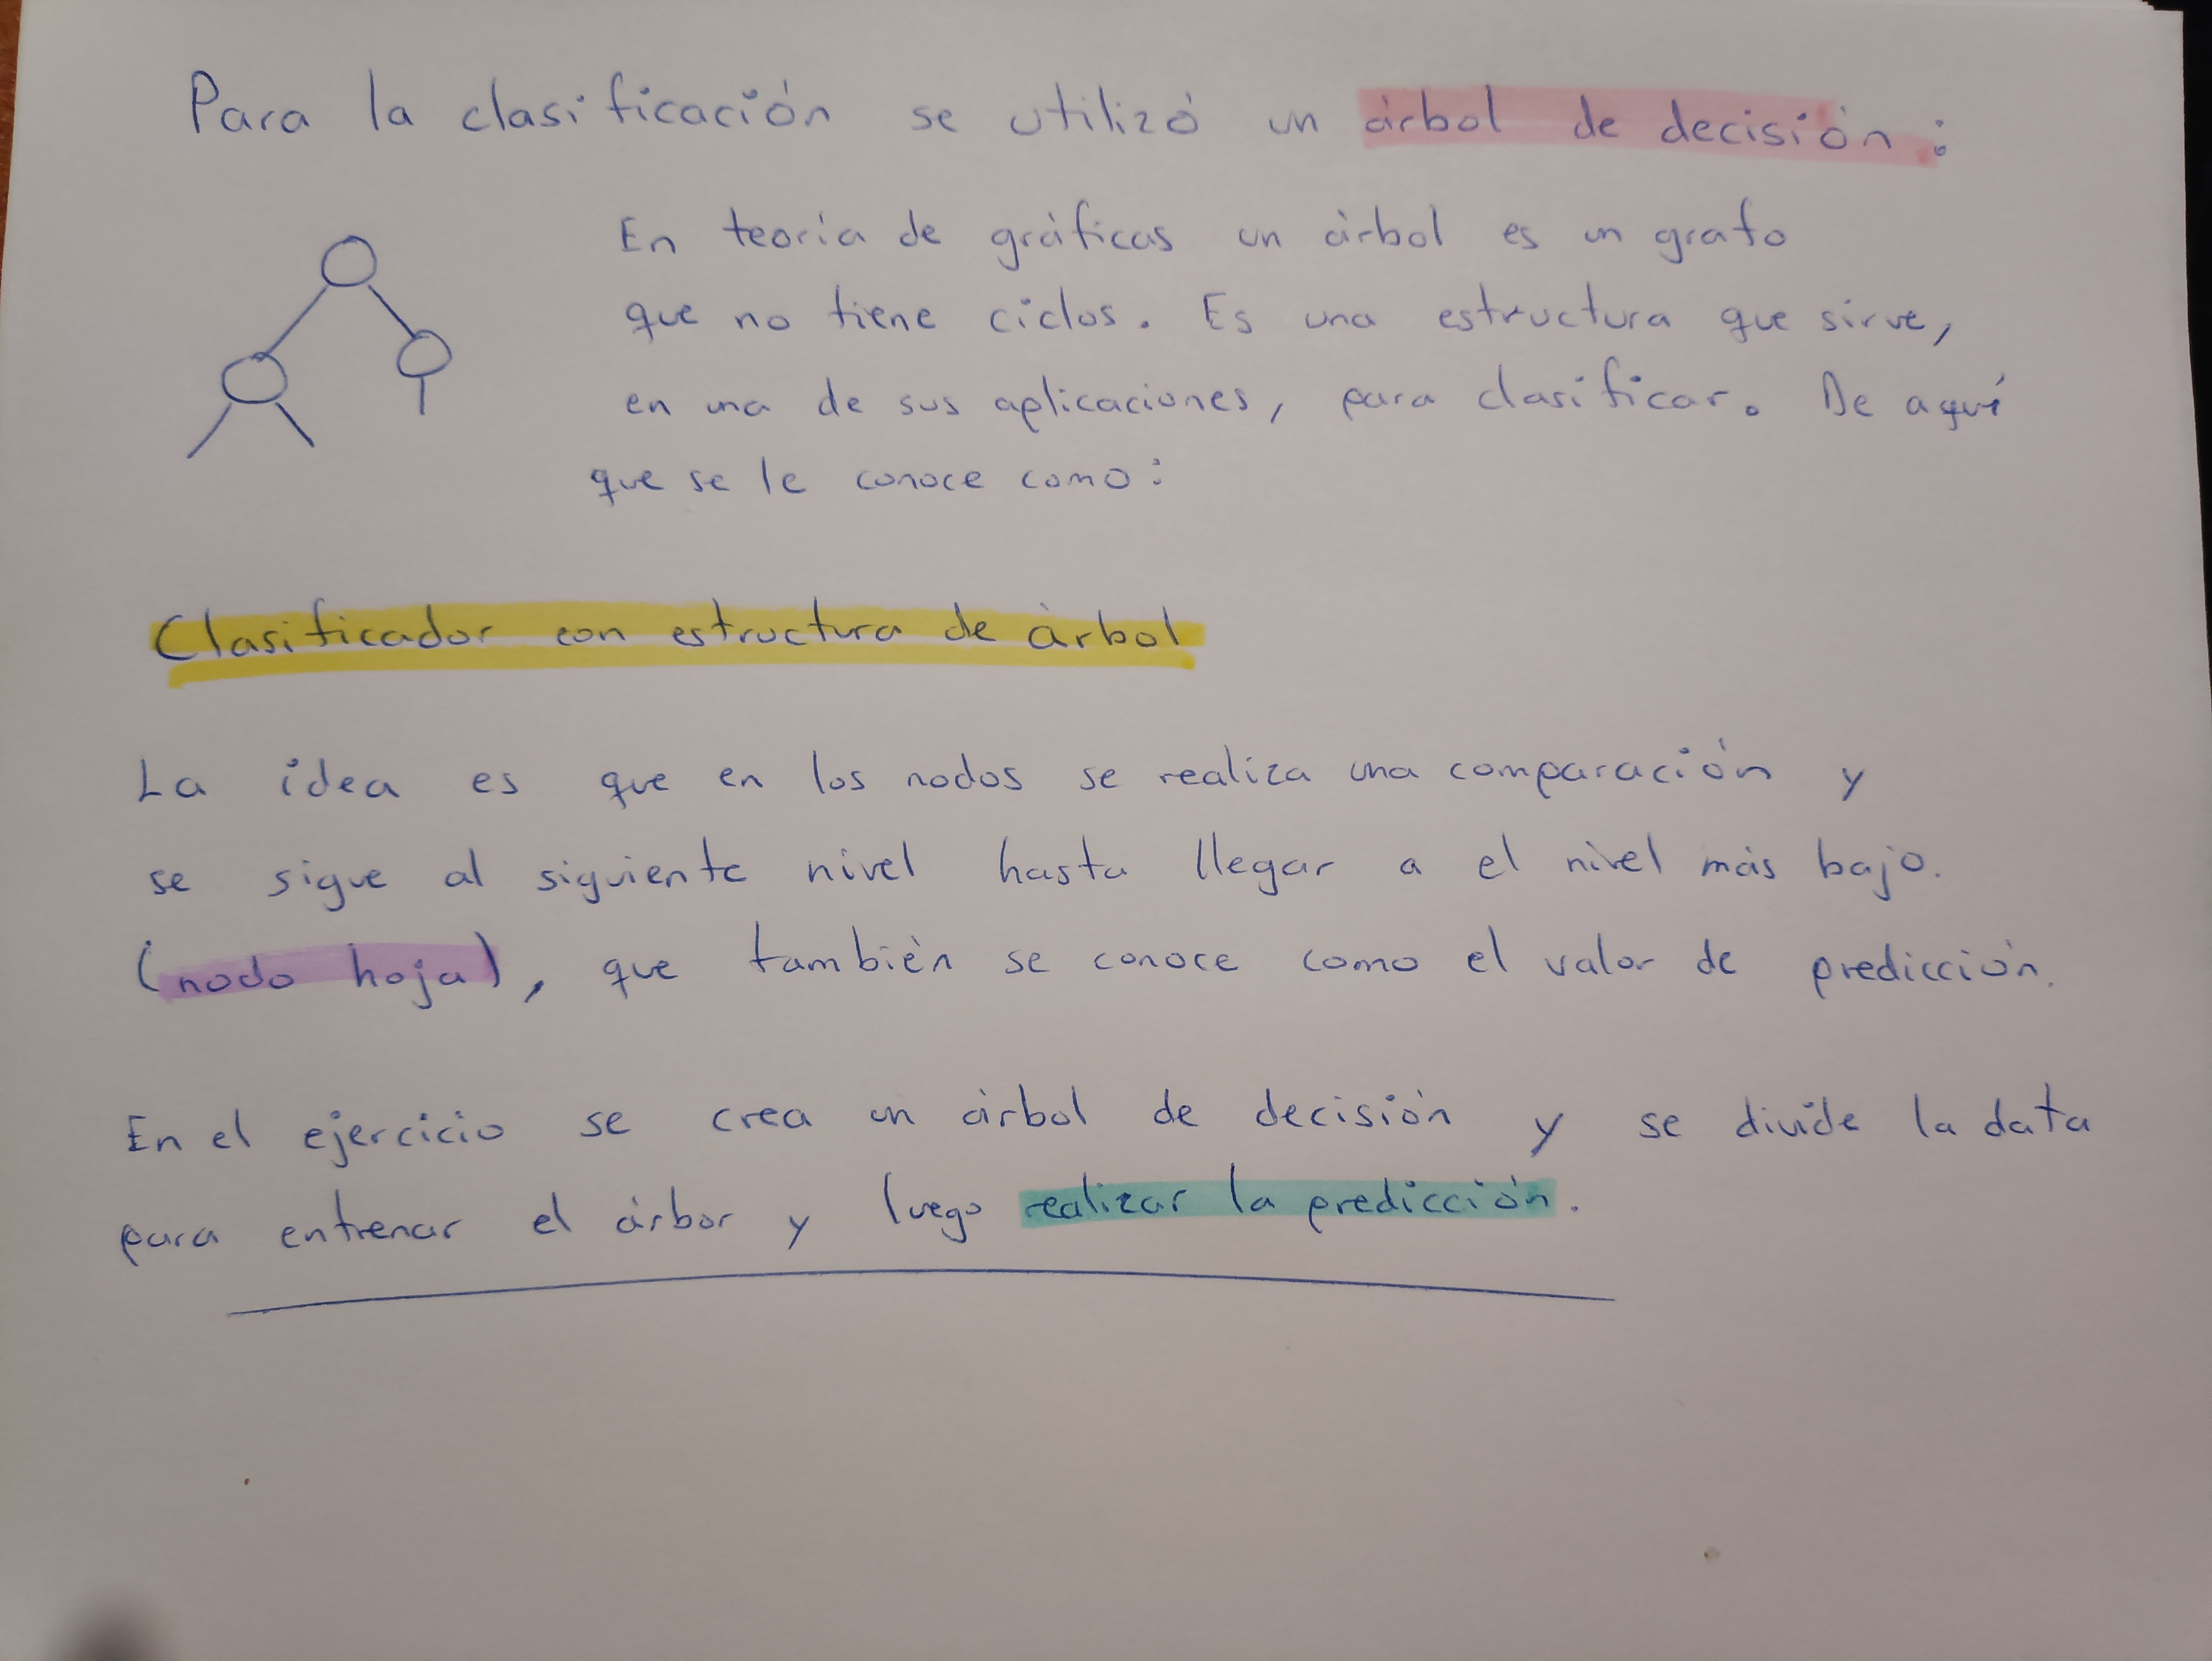 Para la clasificación se utilizó un árbol de decisión:
En teoría de gráficas un árbol es un grafo
que no tiene ciclos. Es una estructura que sirve,
en una de sus aplicaciones, para clasificar. De aquí
que se le conoce como:
Clasificador con estructura de árbol
La idea es que en los nodos se realiza una comparación y
se sigue al siguiente nivel hasta llegar a el nivel más bajo.
(nodo hoja), que también se conoce como el valor de predicción.
En el ejercicio se crea un árbol de decisión y se divide la data
para entrenar el árbor y luego realizar la predicción.